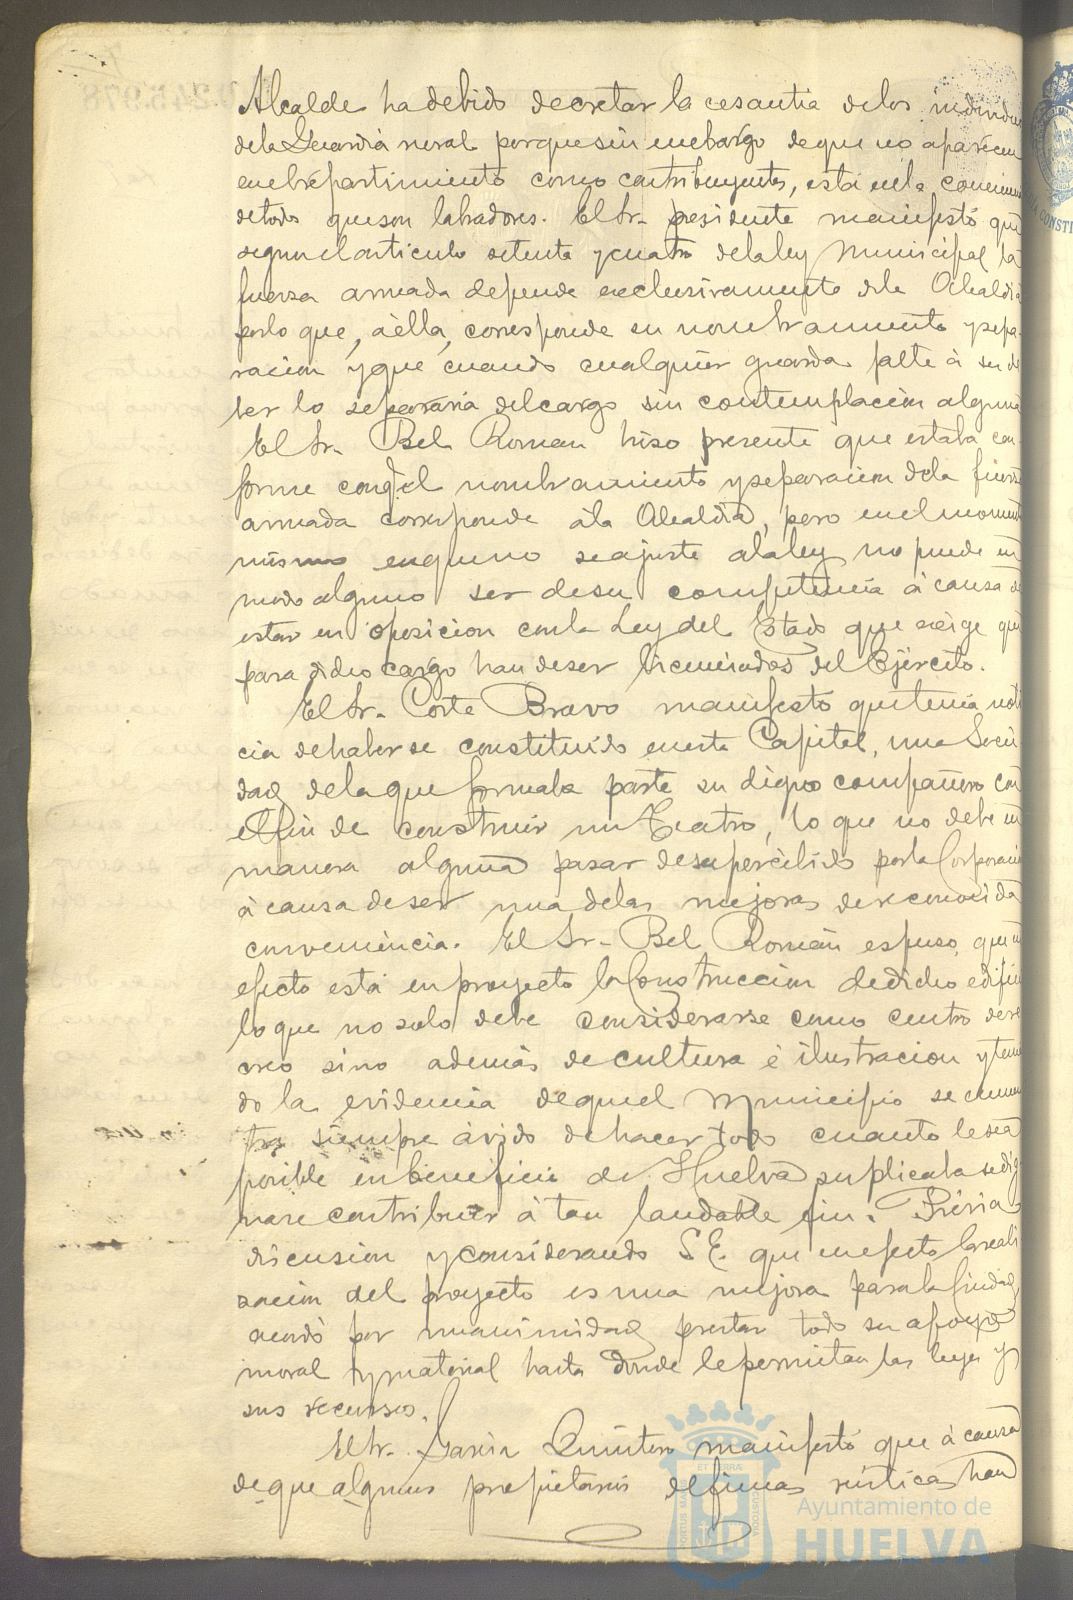 Alcalde ha debido decretar la cesantia de los individuos
de la Guardia rural porque sin embargo de que no aparecen
en el repartimiento como contribuyentes, está en la
de todos que son labradores. El Sr. presidente manifestó que
segun el articulo setenta y cuatro de la ley Municipal la
fuerza armada depende exclusivamente de la Alcaldia
por lo que, á ella, corresponde su nombramiento y sepa-
racion y que cuando cualquier guarda falte á su de
ber lo separaria del cargo sin contemplacion alguna
El Sr. Bel Roman hiso presente que estaba con-
forme con q. el nombramiento y separacion de la fuerza
armada corresponde á la Alcaldia, pero en el momento
mismo en que no se ajuste a la ley no puede en
modo alguno ser de su competencia á causa de
estar en oposicion con la Ley del Estado que exige que
para dicho cargo han de ser licenciados del Ejército.
El Sr. Corte Bravo manifestó que tenia noti
cia de haberse constituido en esta Capital, una Socie
dad de la que formaba parte su digno compañero con
el fin de construir un Teatro, lo que no debe en
manera alguna pasar desapercibido por la Corporacion
á causa de ser una de las mejoras de reconocida
conveniencia. El Sr. Bel Román espuso, que en
efecto está en proyecto la Construccion de dicho edificio
lo que no solo debe considerarse como centro de re
creo sino además de cultura é ilustracion y tenien
do la evidencia de que el Municipio se encuen
tra siempre ávido de hacer todo cuanto le sea
posible en beneficio de Huelva suplicaba se dig
nase contribuir á tan laudable fin. Prévia
discusion y considerando S.E. que en efecto la reali
zacion del proyecto es una mejora para la Ciudad,
acordó por unanimidad prestar todo su apoyo
moral y material hasta donde le permitan las leyes y
sus recursos.
El Sr. Garcia Quintero manifestó que á causa
de que algunos propietarios de fincas rústicas han
Ayuntamiento de
HUELVA